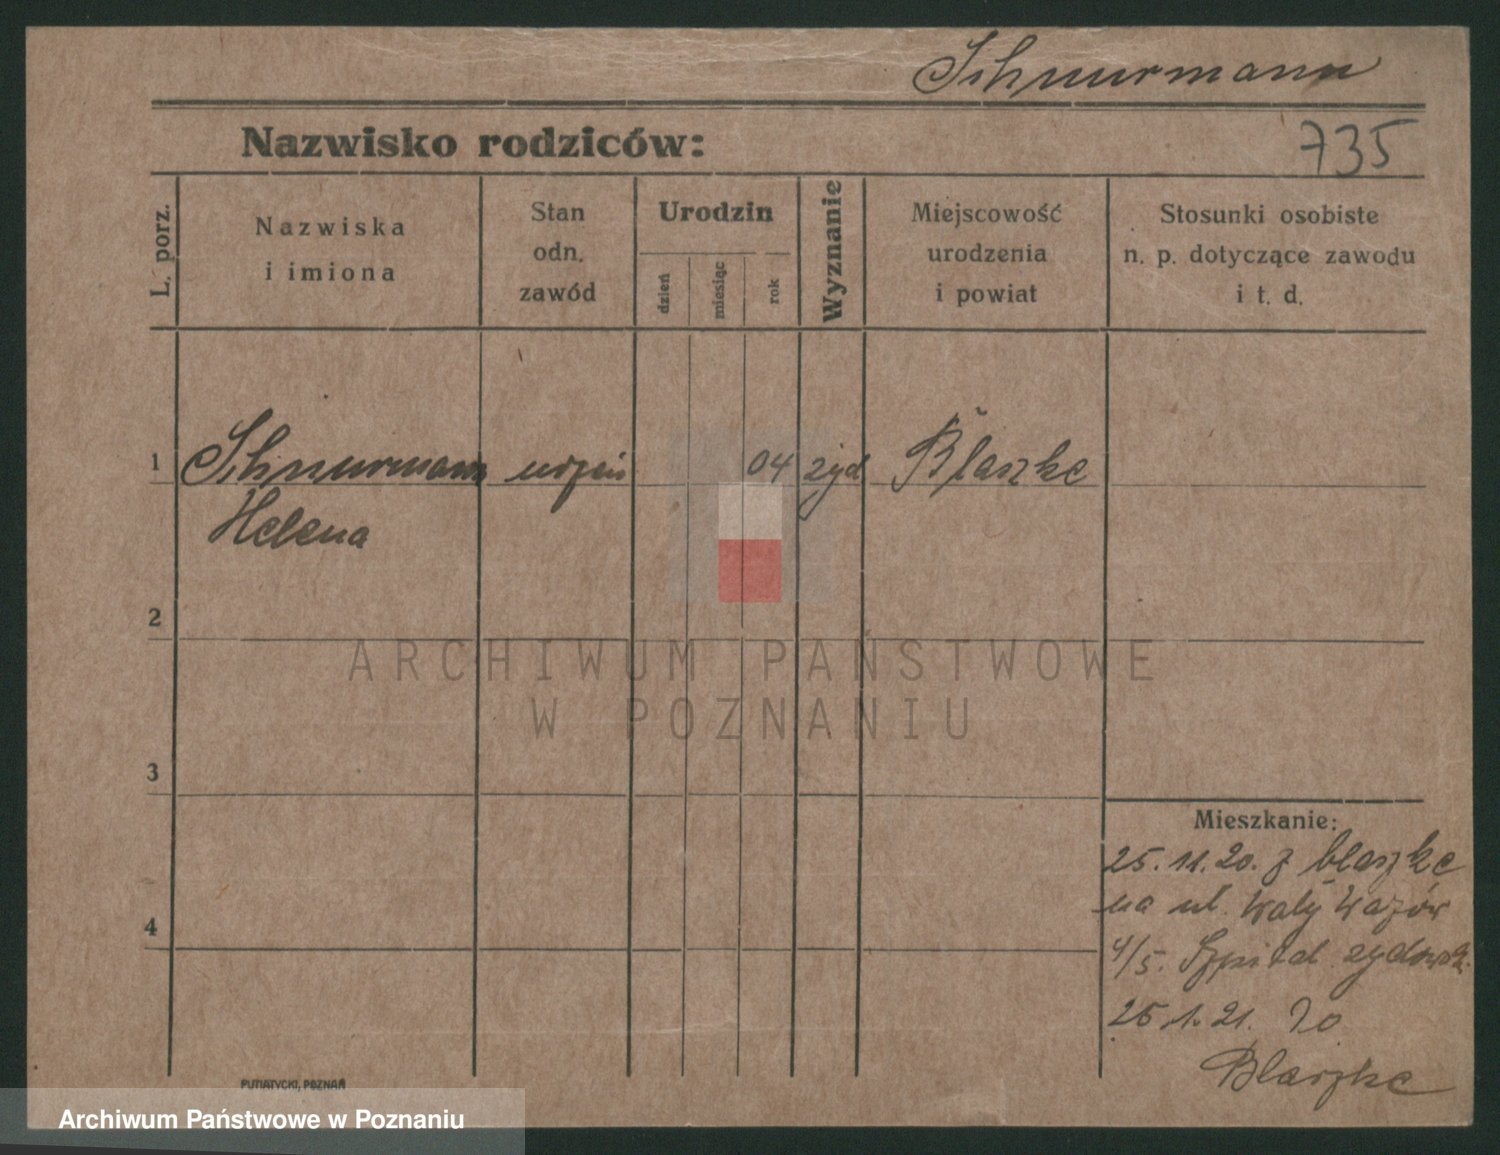 Schnurmann
Nazwisko rodziców:
735
L. porz.
Nazwiska
i imiona
Stan
odn.
zawód
Urodzin
dzień
miesiąc
rok
Wyznanie
Miejscowość
urodzenia
i powiat
Stosunki osobiste
n. p. dotyczące zawodu
i t. d.
1
Schnurmann
04
żyd
Blaszke
Helena
2
ARCHIWUM PAŃSTWOWE
W POZNANIU
3
Mieszkanie:
25.11.20. z blaszke
na ul. Wały Wazów
4/5. Szpital żydowsk.
25.1.21. do
Blaszke
4
PUTIATYCKI, POZNAŃ
Archiwum Państwowe w Poznaniu